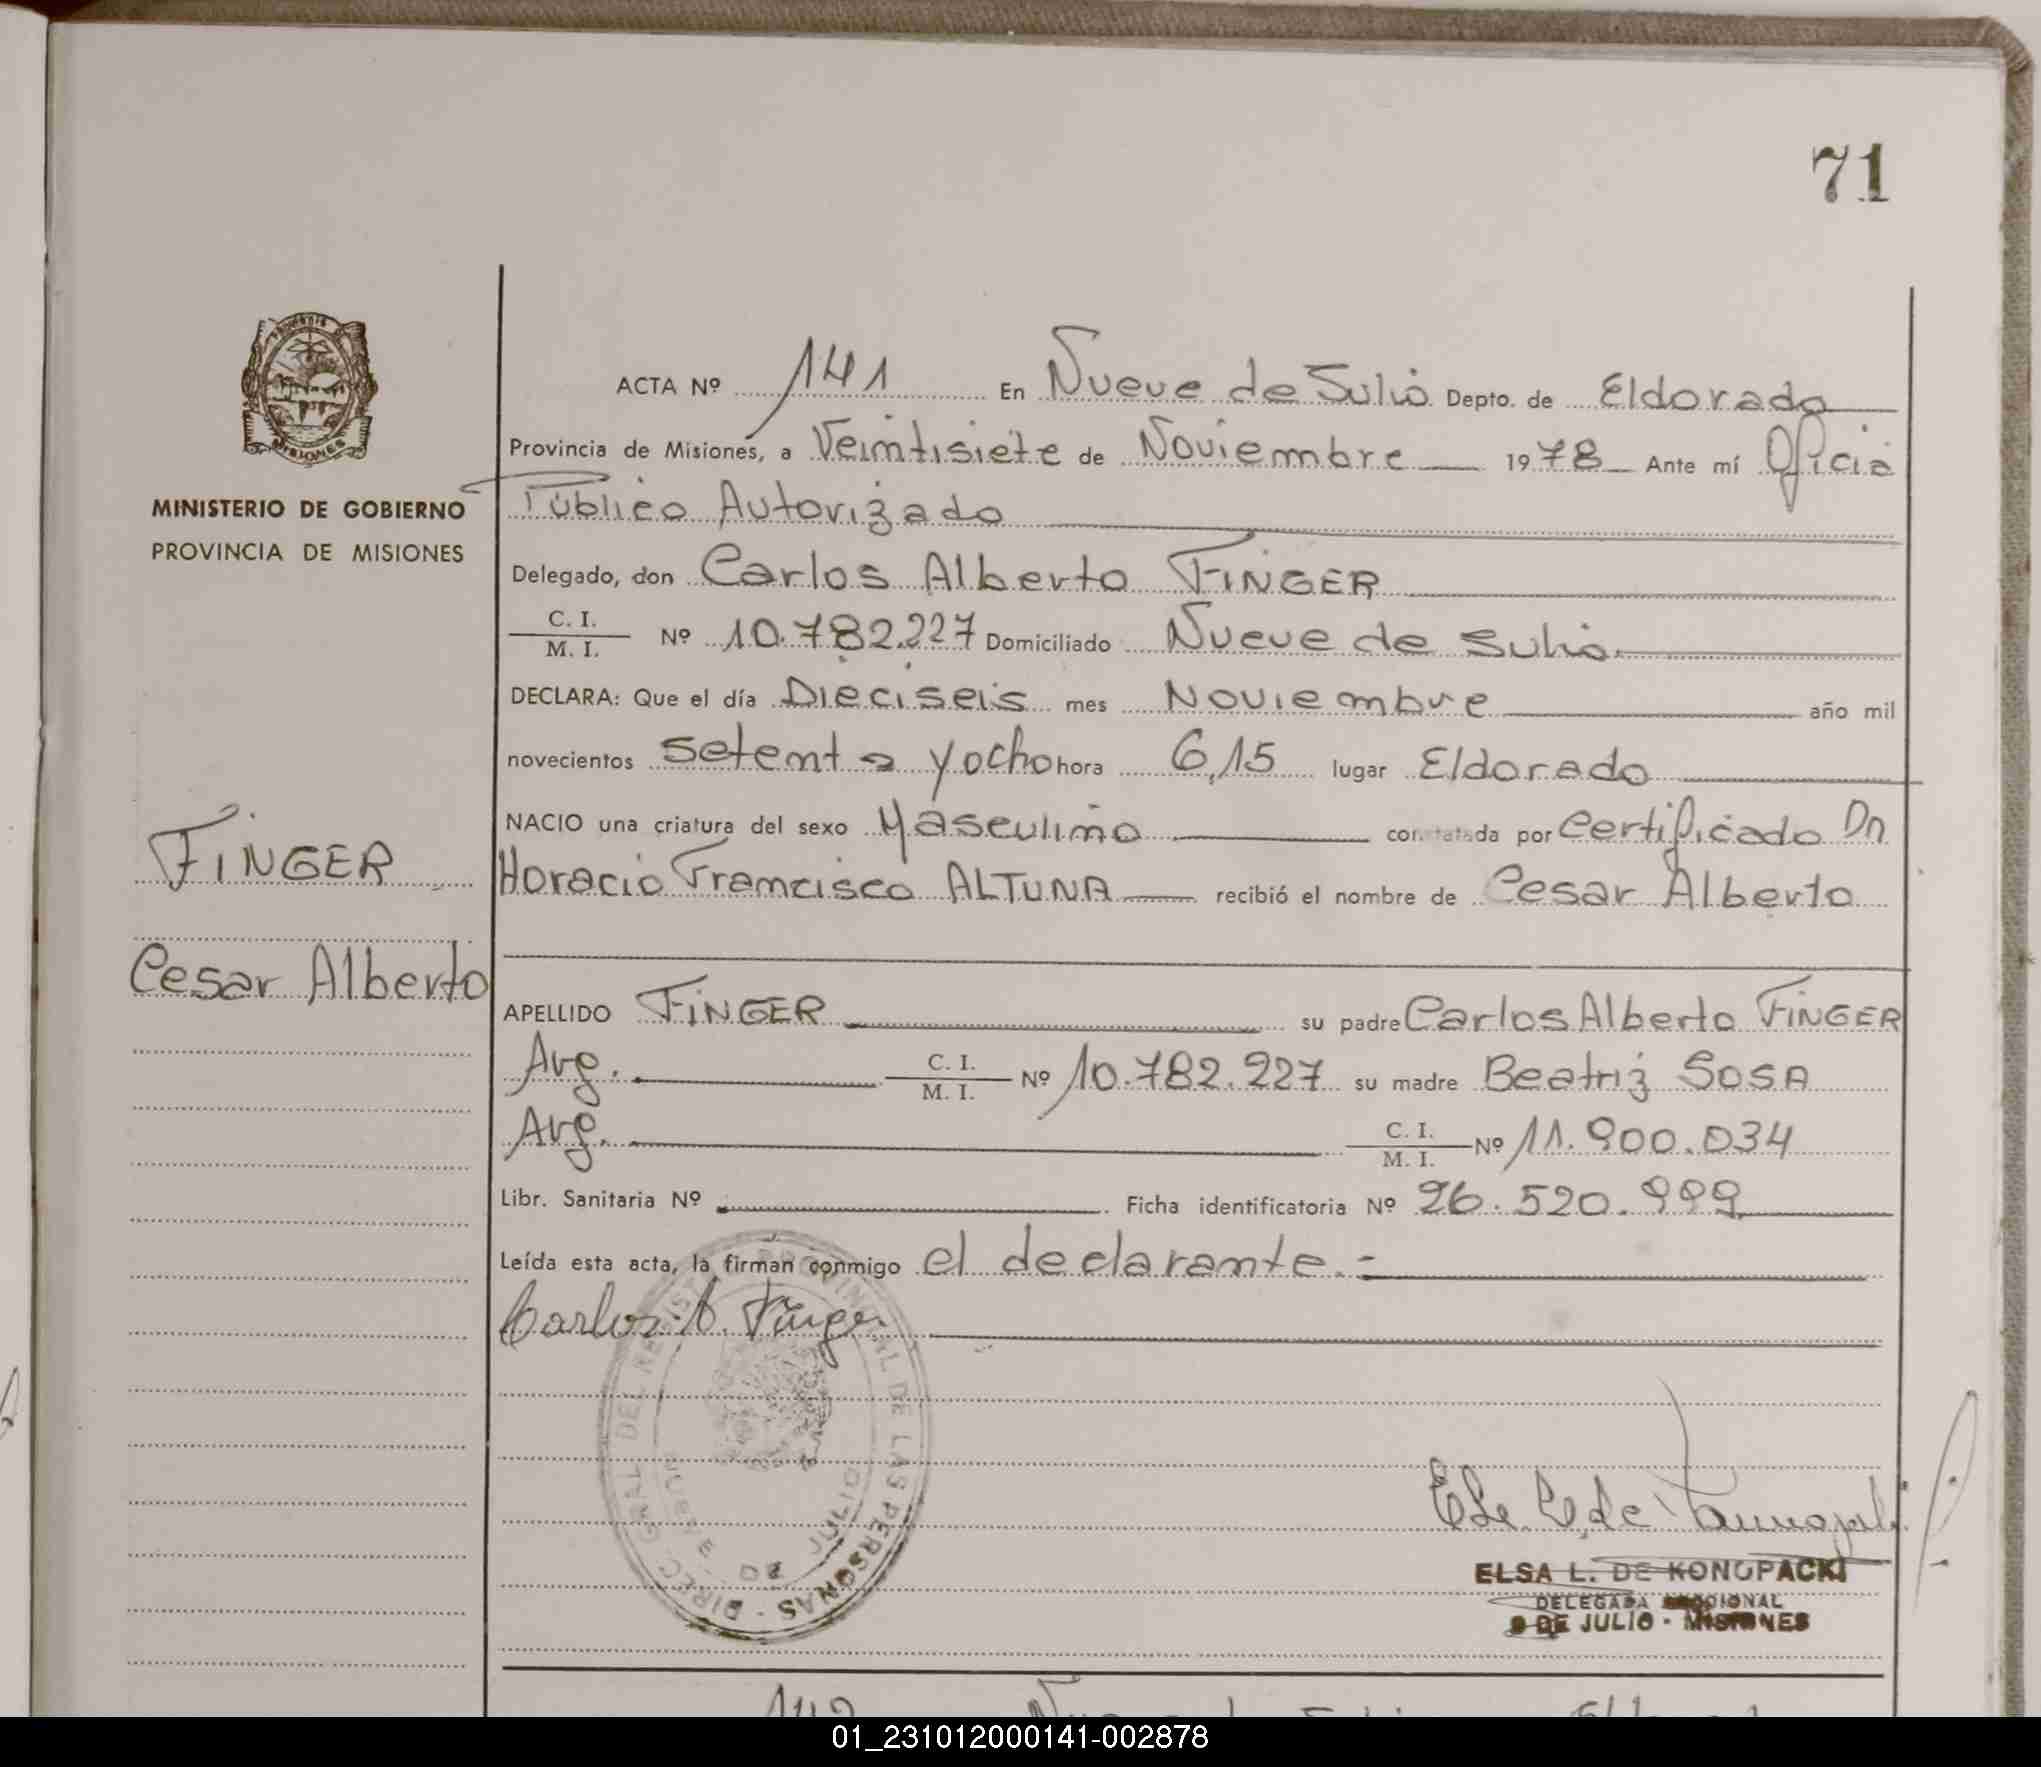 71
ACTA Nº 141 En Nueve de Julio Depto. de Eldorado
Provincia de Misiones, a Veintisiete de Noviembre 1978 Ante mí Oficia
Público Autorizado
MINISTERIO DE GOBIERNO
PROVINCIA DE MISIONES
Delegado, don Carlos Alberto FINGER
C. I.
M. I. Nº 10.782.227 Domiciliado Nueve de Julio
DECLARA: Que el día Dieciseis mes Noviembre año mil
novecientos setenta y ocho hora 6,15 lugar Eldorado
NACIO una criatura del sexo Masculino constatada por Certificado Dn
Horacio Francisco ALTUNA recibió el nombre de Cesar Alberto
FINGER
Cesar Alberto
APELLIDO FINGER su padre Carlos Alberto FINGER
Arg. C. I.
M. I. Nº 10.782.227 su madre Beatriz SOSA
Arg. C. I.
M. I. Nº 11.900.034
Libr. Sanitaria Nº Ficha identificatoria Nº 26.520.999
Leída esta acta, la firman conmigo el declarante.-
Carlos A. Finger
DIREC. GRAL DEL REGISTRO PROVINCIAL DE LAS PERSONAS -
NUEVE DE JULIO
ELSA L. DE KONOPACKI
DELEGADA
9 DE JULIO - MISIONES
01_231012000141-002878